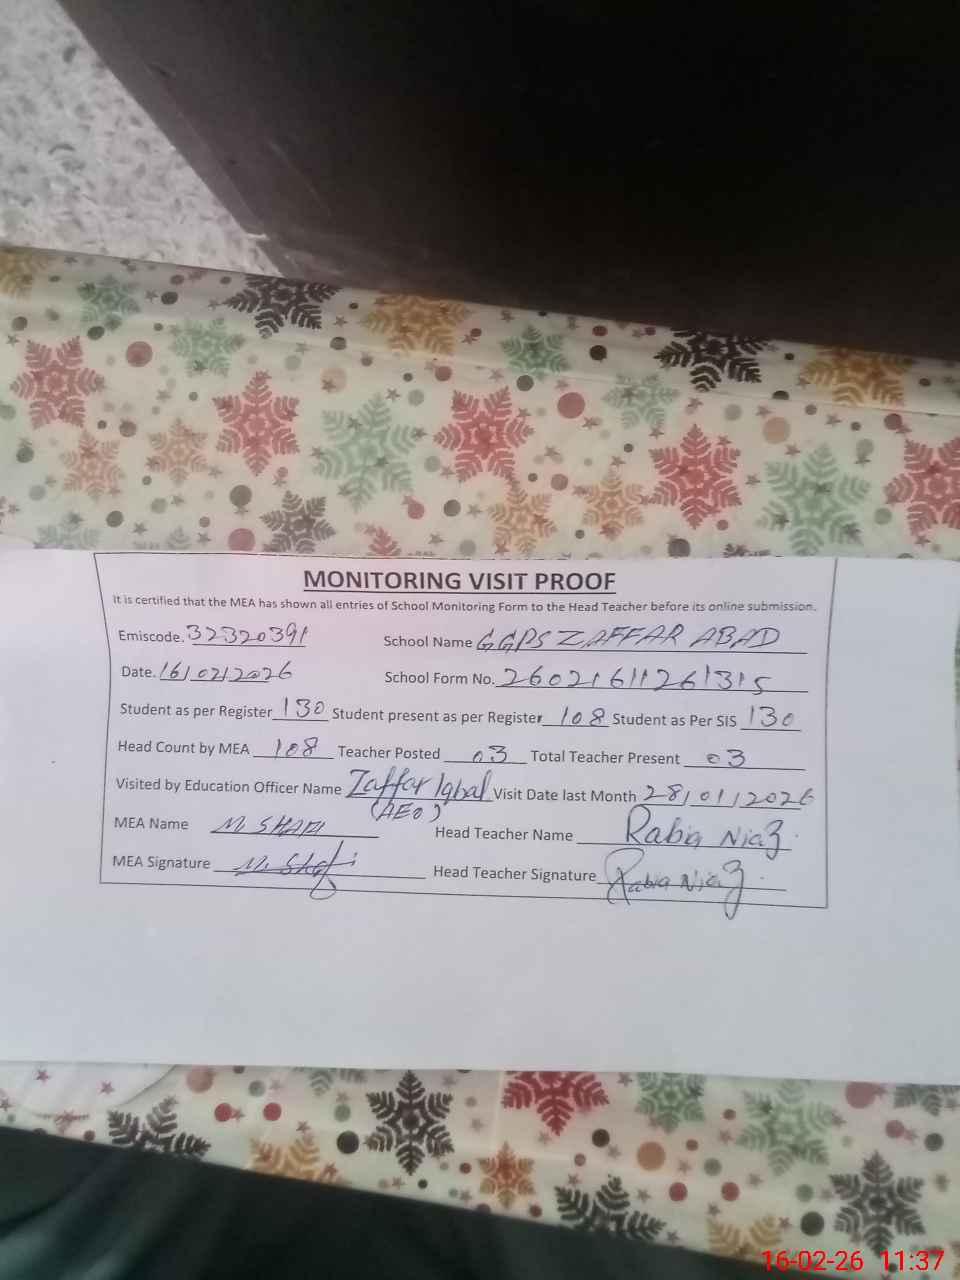 MONITORING VISIT PROOF
It is certified that the MEA has shown all entries of School Monitoring Form to the Head Teacher before its online submission.
Emiscode. 32320391 School Name GGPS ZAFFAR ABAD
Date. 16/02/2026 School Form No. 26021611261315
Student as per Register 130 Student present as per Register 108 Student as Per SIS 130
Head Count by MEA 108 Teacher Posted 03 Total Teacher Present 03
Visited by Education Officer Name Zaffar Iqbal (AEO) Visit Date last Month 28/01/2026
MEA Name M. SHAFI Head Teacher Name Rabia Niaz
MEA Signature M. Shafi Head Teacher Signature Rabia Niaz
16-02-26 11:37